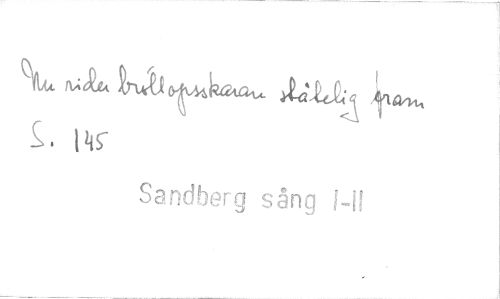 Nu rider bröllopsskaran ståtelig fram
S. 145
Sandberg sång I-II